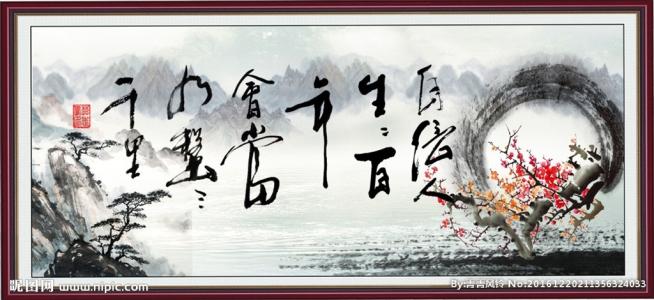 自信人
生二百
年
會當
水擊三
千里
昵图网
www.nipic.com
By:青青风铃 No:20161220211356324033